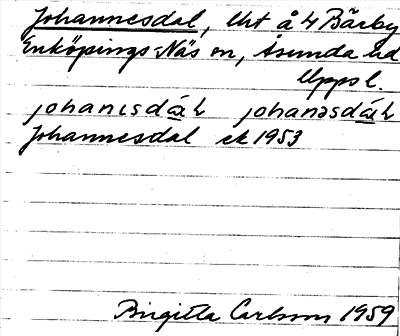 Johannesdal, lht å 4 Bärby
Enköpings-Näs sn, Åsunda hd
Uppsl.
johanısdɑ́ḷ johanəsdɑ́ḷ
Johannesdal ek 1953
Birgitta Carlsson 1959